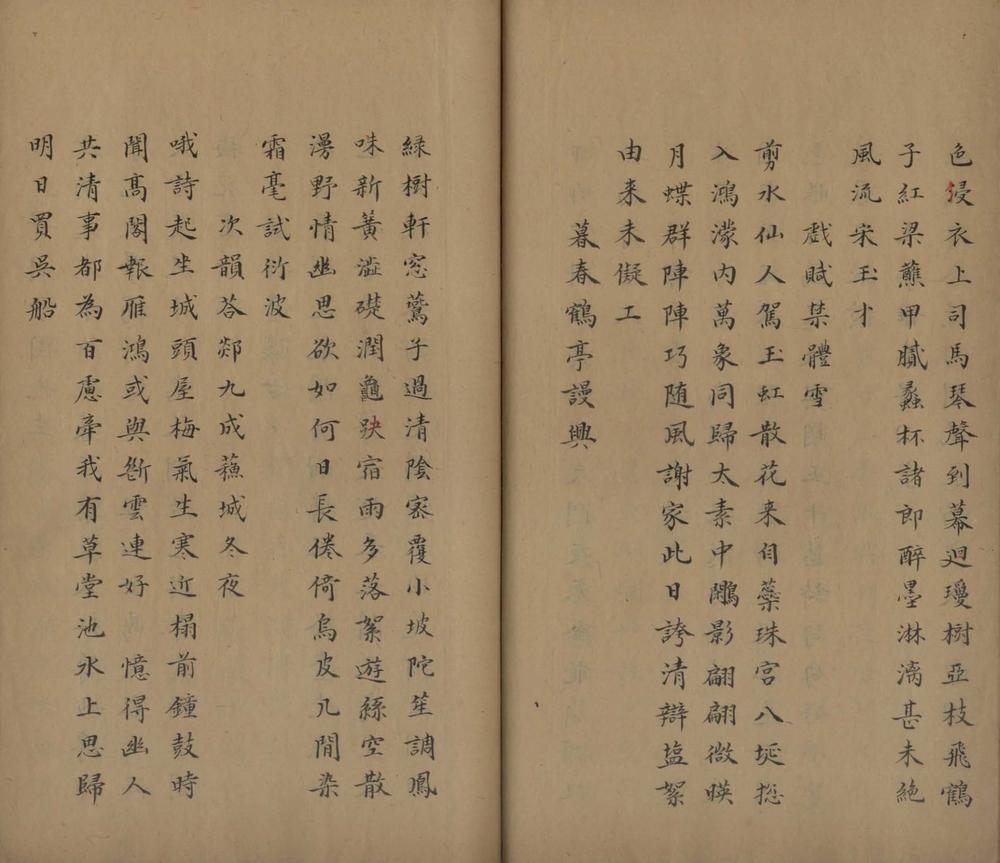 色浸衣上司馬琴聲到幕迴瓊樹亞枝飛鶴
子紅梁蘸甲膩蠡杯諸郎醉墨淋漓甚未絶
風流宋玉才
戲賦禁體雪
剪水仙人駕玉虹散花来自蘂珠宮八埏揔
入鴻濛内萬象同歸太素中鵰影翩翩微暎
月蝶群陣陣巧随風謝家此日誇清辯塩絮
由来未儗工
暮春鶴亭謾興
緑樹軒窓鷰子過清陰宻覆小坡陀笙調鳳
咮新簧澁礎潤龜趺宿雨多落絮遊絲空散
漫野情幽思欲如何日長倦倚烏皮几閒染
霜毫試衍波
次韻荅郯九成蘓城冬夜
哦詩起坐城頭屋梅氣生寒近榻前鐘鼓時
聞髙閣報雁鴻或與斷雲連好憶得幽人
共清事都為百慮牽我有草堂池水上思歸
明日買吳船